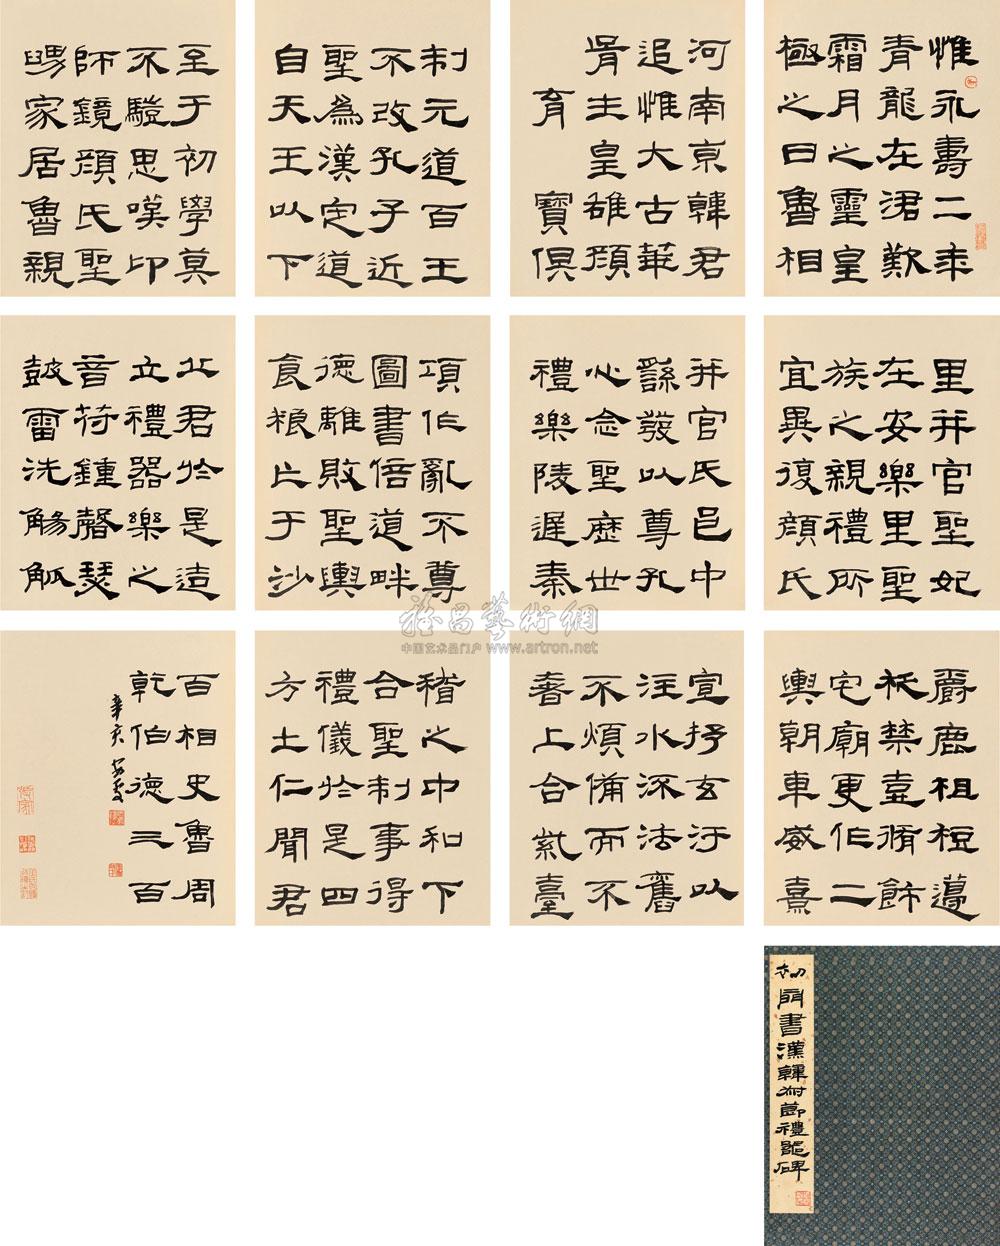 惟永壽二年
青龍在涒歎
霜月之靈皇
極之日魯相
河南京韓君
追惟大古華
胥生皇雄顏
育寶俱
制元道百王
不改孔子近
聖為漢定道
自天王以下
至于初學莫
不驥思嘆卬
師鏡顏氏聖
舅家居魯親
里并官聖妃
在安樂里聖
族之親禮所
宜異復顏氏
并官氏邑中
繇發以尊孔
心念聖歷世
禮樂陵遲秦
項作亂不尊
圖書倍道畔
德離敗聖輿
食粮亡于沙
丘君於是造
立禮器樂之
音苻鍾磬瑟
鼓雷洗觴觚
爵鹿柤梪籩
柉禁壺脩飾
宅廟更作二
輿朝車威熹
宣抒玄汙以
注水流法舊
不煩備而不
奢上合紫臺
稽之中和下
合聖制事得
禮儀於是四
方土仁聞君
百相史魯周
乾伯德三百
辛亥
書漢韓敕節禮器碑
雅昌藝術網
中国艺术品门户 www.artron.net